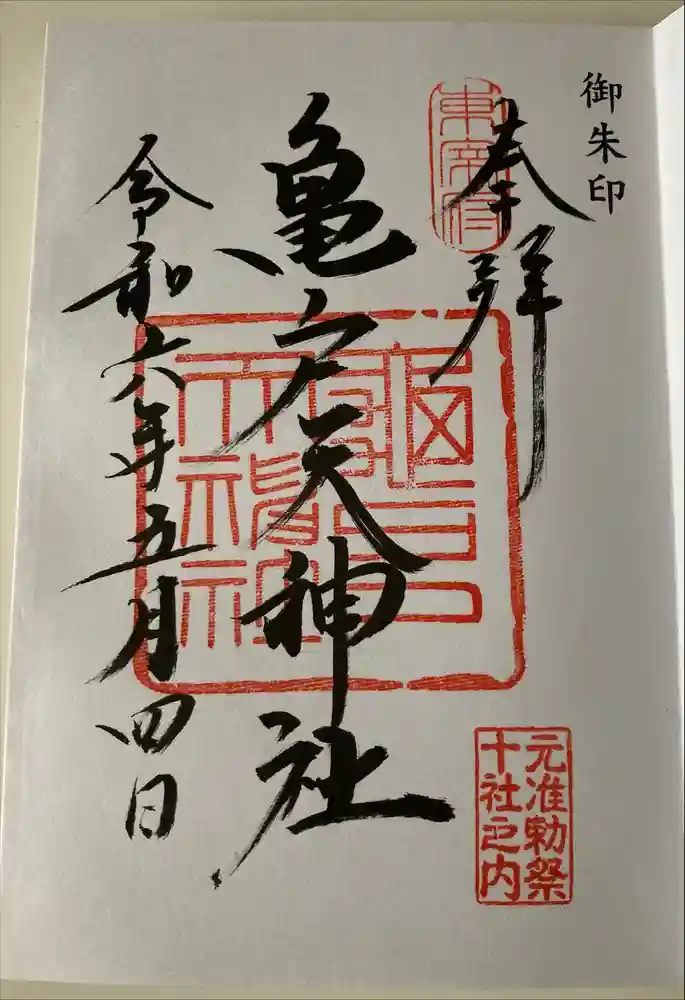 御朱印
奉拝
東宰府
亀戸天神社
令和六年五月四日
元准勅祭
十社之内